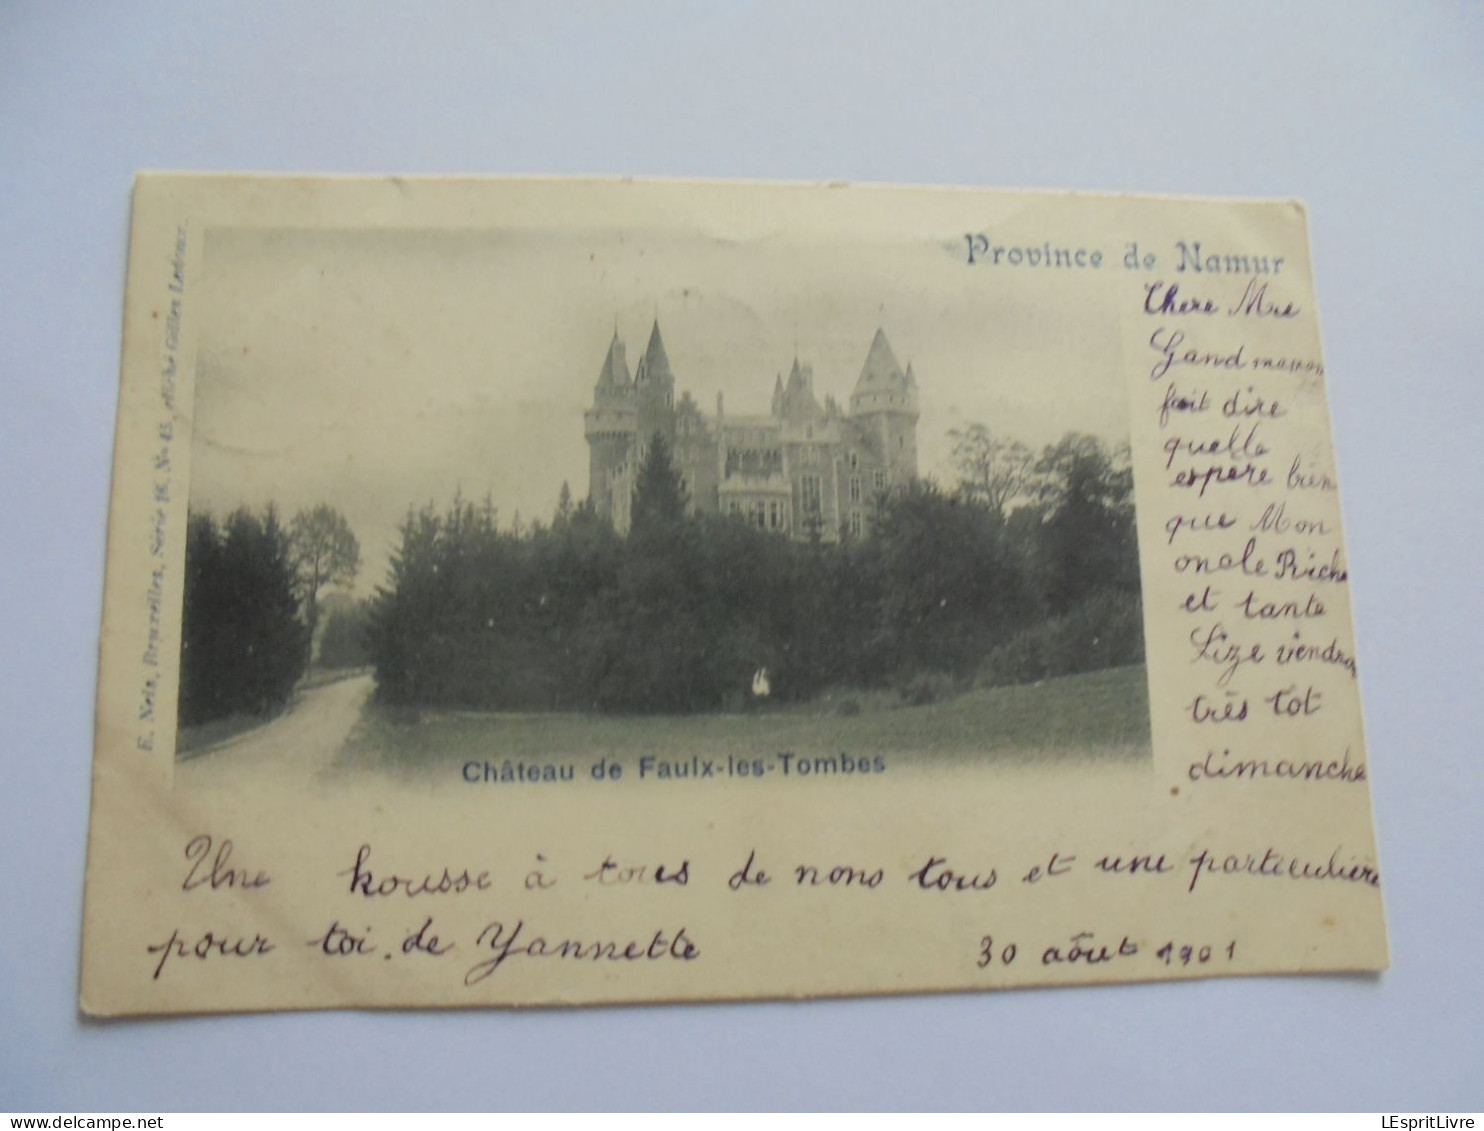 Province de Namur
Chere Mre
Gand maman
fait dire
quelle
espere bien
que Mon
oncle Riche
et tante
Lize viendra
très tot
dimanche
E. Nels, Bruxelles, Série 16, No 45, cliché Gilles Ledoux
Château de Faulx-les-Tombes
Une kousse à tous de nono tous et une particulière
pour toi. de Yannette
30 aôut 1901
LEspritLivre